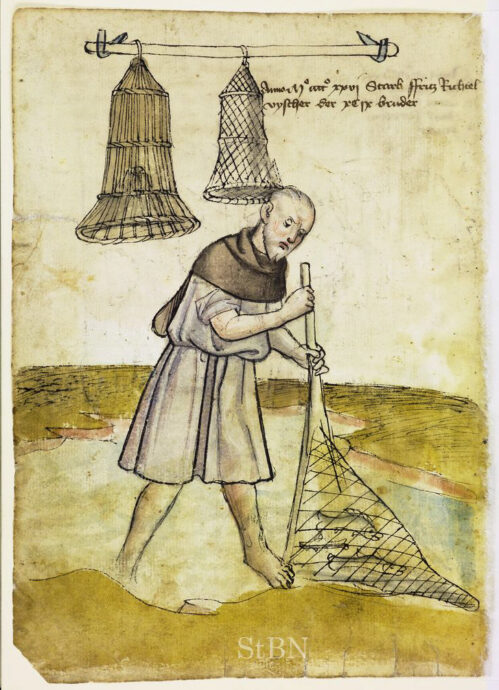 Anno Mº cccº xxvi Starb ffricz Richtel
vyscher der xCix bruder
StBN